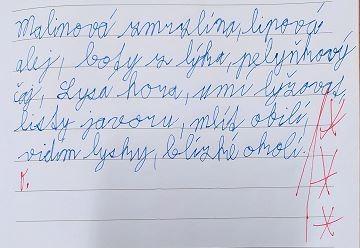 Malinová zmrzlina, lipová
alej, boty z lýka, pelyňkový
čaj, Lysa hora, umí lyžovat,
listy javoru, mlít obilí,
vidím lysky, blízké okolí.